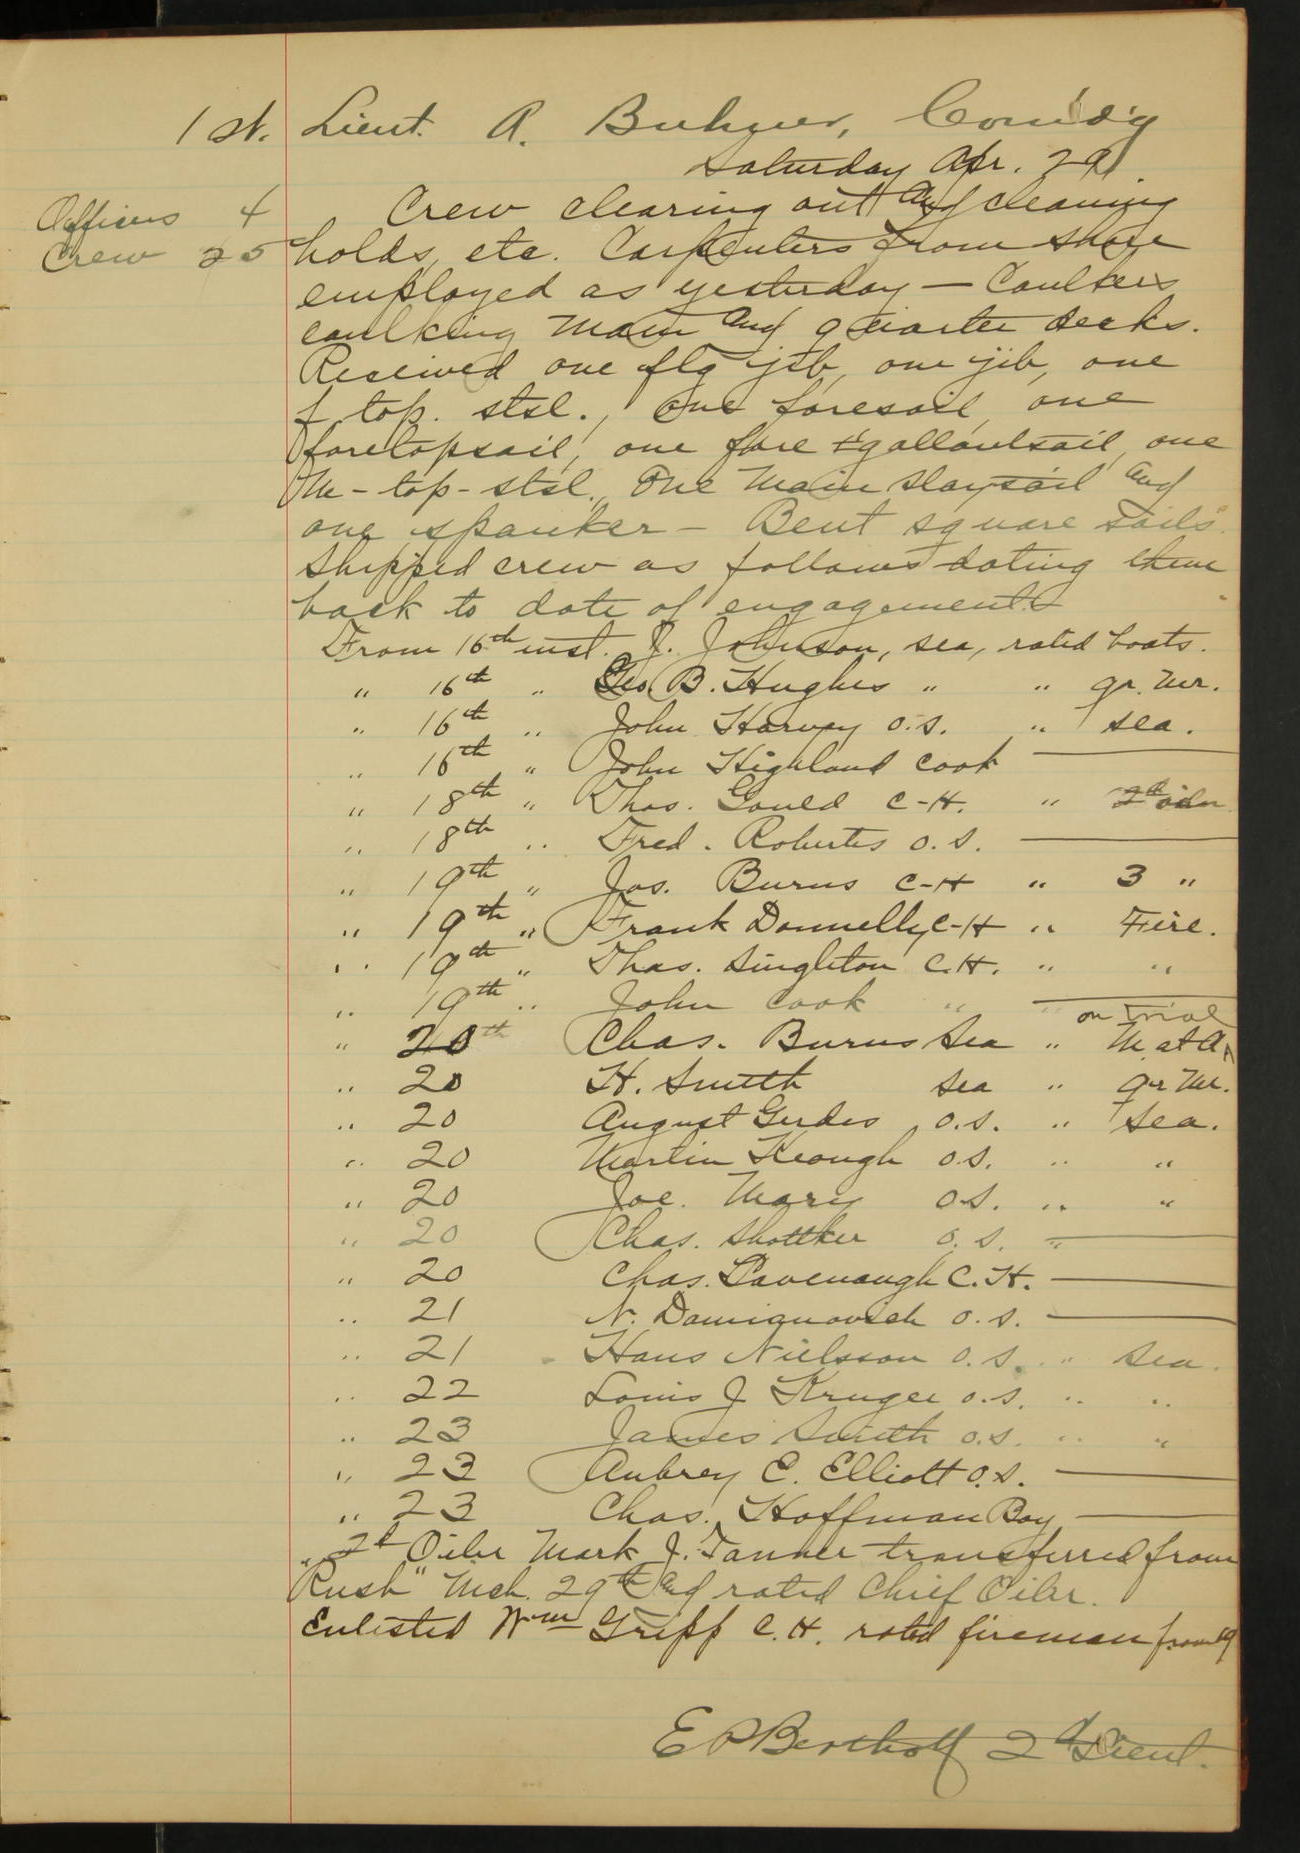 1st. Lieut. A. Buhner, Com'd'g
Saturday Apr. 29.
Officers 4 Crew clearing out and cleaning
Crew 25 holds, etc. Carpenters from shore
employed as yesterday — Caulkers
caulking main and quarter decks.
Received one flg jib, one jib, one
f. top. stsl., one foresail, one
foretopsail, one fore t'gallantsail, one
M-top-stsl., one main staysail and
one spanker - Bent square sails.
Shipped crew as follows dating them
back to date of engagements
From 16th inst. J. Johnson, sea, rated boats.
" 16th " Geo. B. Hughes " " qr. mr.
" 16th " John Harvey o.s. " sea.
" 16th " John Highland cook —
" 18th " Thos. Gould C-H. " 2d oiler
" 18th " Fred. Roberts o.s. —
" 19th " Jos. Burns C-H " 3 "
" 19th " Frank Donnelly C-H " Fire.
" 19th " Thos. Singleton C.H. " "
" 19th " John Cook " " —
on trial
" 20th Chas. Burns Sea " M. at A.
" 20 H. Smith sea " qr Mr.
" 20 August Gerdes o.s. " Sea.
" 20 Martin Keough o.s. " "
" 20 Joe. Mary o.s. " "
" 20 Chas. Shottker o.s. " —
" 20 Chas. Cavenaugh C.H. —
" 21 N. Damianovich o.s. —
" 21 Hans Nielsson o.s. " Sea.
" 22 Louis J Kruger o.s. " "
" 23 James Smith o.s. " "
" 23 Aubrey E. Elliott o.s. —
" 23 Chas. Hoffman Boy —
2d Oiler Mark J. Tanner transferred from
"Rush" Mch. 29th and rated Chief Oiler.
Enlisted Wm Gripp C.H. rated fireman from 19
E P Bertholf 2d Lieut.